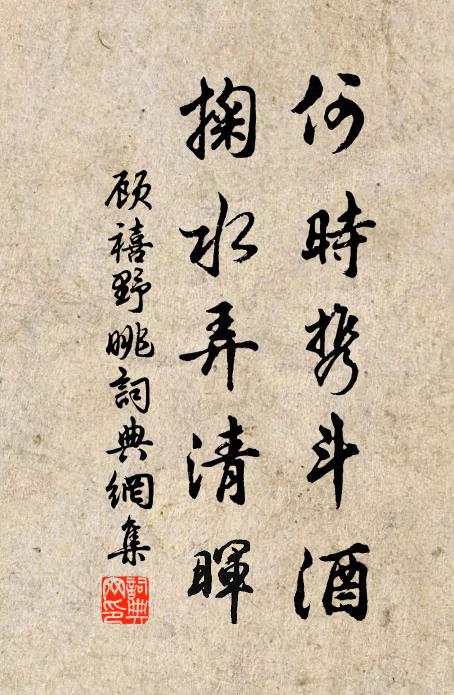 何時携斗酒
掬水弄清暉
顾禧野眺詞典網集
詞典网印